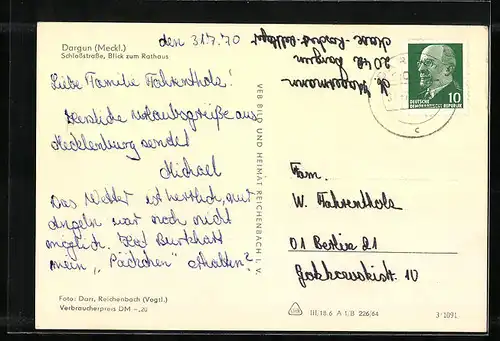 Dargun (Meckl.)
Schloßstraße, Blick zum Rathaus
den 31.7.70
Liebe Familie Fahrenholz!
Herzliche Urlaubsgrüße aus
Mecklenburg sendet
Michael
Das Wetter ist herrlich, nur
Angeln war noch nicht
möglich. Hat Burkhatt
mein „Päckchen“ erhalten?
Foto: Darr, Reichenbach (Vogtl.)
Verbraucherpreis DM –,20
VEB BILD UND HEIMAT REICHENBACH I. V.
2042 Dargun
DEUTSCHE
DEMOKRATISCHE REPUBLIK
10
c
Fam.
W. Fahrenholz
01 Berlin 21
10
III/18/6 A 1/B 226/64
3/1091